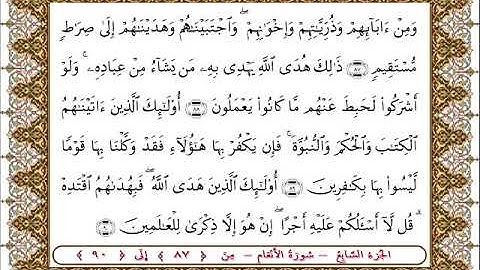 وَمِنْ ءَابَآئِهِمْ وَذُرِّيَّـٰتِهِمْ وَإِخْوَٰنِهِمْ ۖ وَٱجْتَبَيْنَـٰهُمْ وَهَدَيْنَـٰهُمْ إِلَىٰ صِرَٰطٍ
مُّسْتَقِيمٍ ﴿٨٧﴾ ذَٰلِكَ هُدَى ٱللَّهِ يَهْدِى بِهِۦ مَن يَشَآءُ مِنْ عِبَادِهِۦ ۚ وَلَوْ
أَشْرَكُوا۟ لَحَبِطَ عَنْهُم مَّا كَانُوا۟ يَعْمَلُونَ ﴿٨٨﴾ أُو۟لَـٰٓئِكَ ٱلَّذِينَ ءَاتَيْنَـٰهُمُ
ٱلْكِتَـٰبَ وَٱلْحُكْمَ وَٱلنُّبُوَّةَ ۚ فَإِن يَكْفُرْ بِهَا هَـٰٓؤُلَآءِ فَقَدْ وَكَّلْنَا بِهَا قَوْمًا
لَّيْسُوا۟ بِهَا بِكَـٰفِرِينَ ﴿٨٩﴾ أُو۟لَـٰٓئِكَ ٱلَّذِينَ هَدَى ٱللَّهُ ۖ فَبِهُدَىٰهُمُ ٱقْتَدِهْ
ۗ قُل لَّآ أَسْـَٔلُكُمْ عَلَيْهِ أَجْرًا ۖ إِنْ هُوَ إِلَّا ذِكْرَىٰ لِلْعَـٰلَمِينَ ﴿٩٠﴾
الجزء السابع – سورة الأنعام – من ﴿ ٨٧ ﴾ إلى ﴿ ٩٠ ﴾